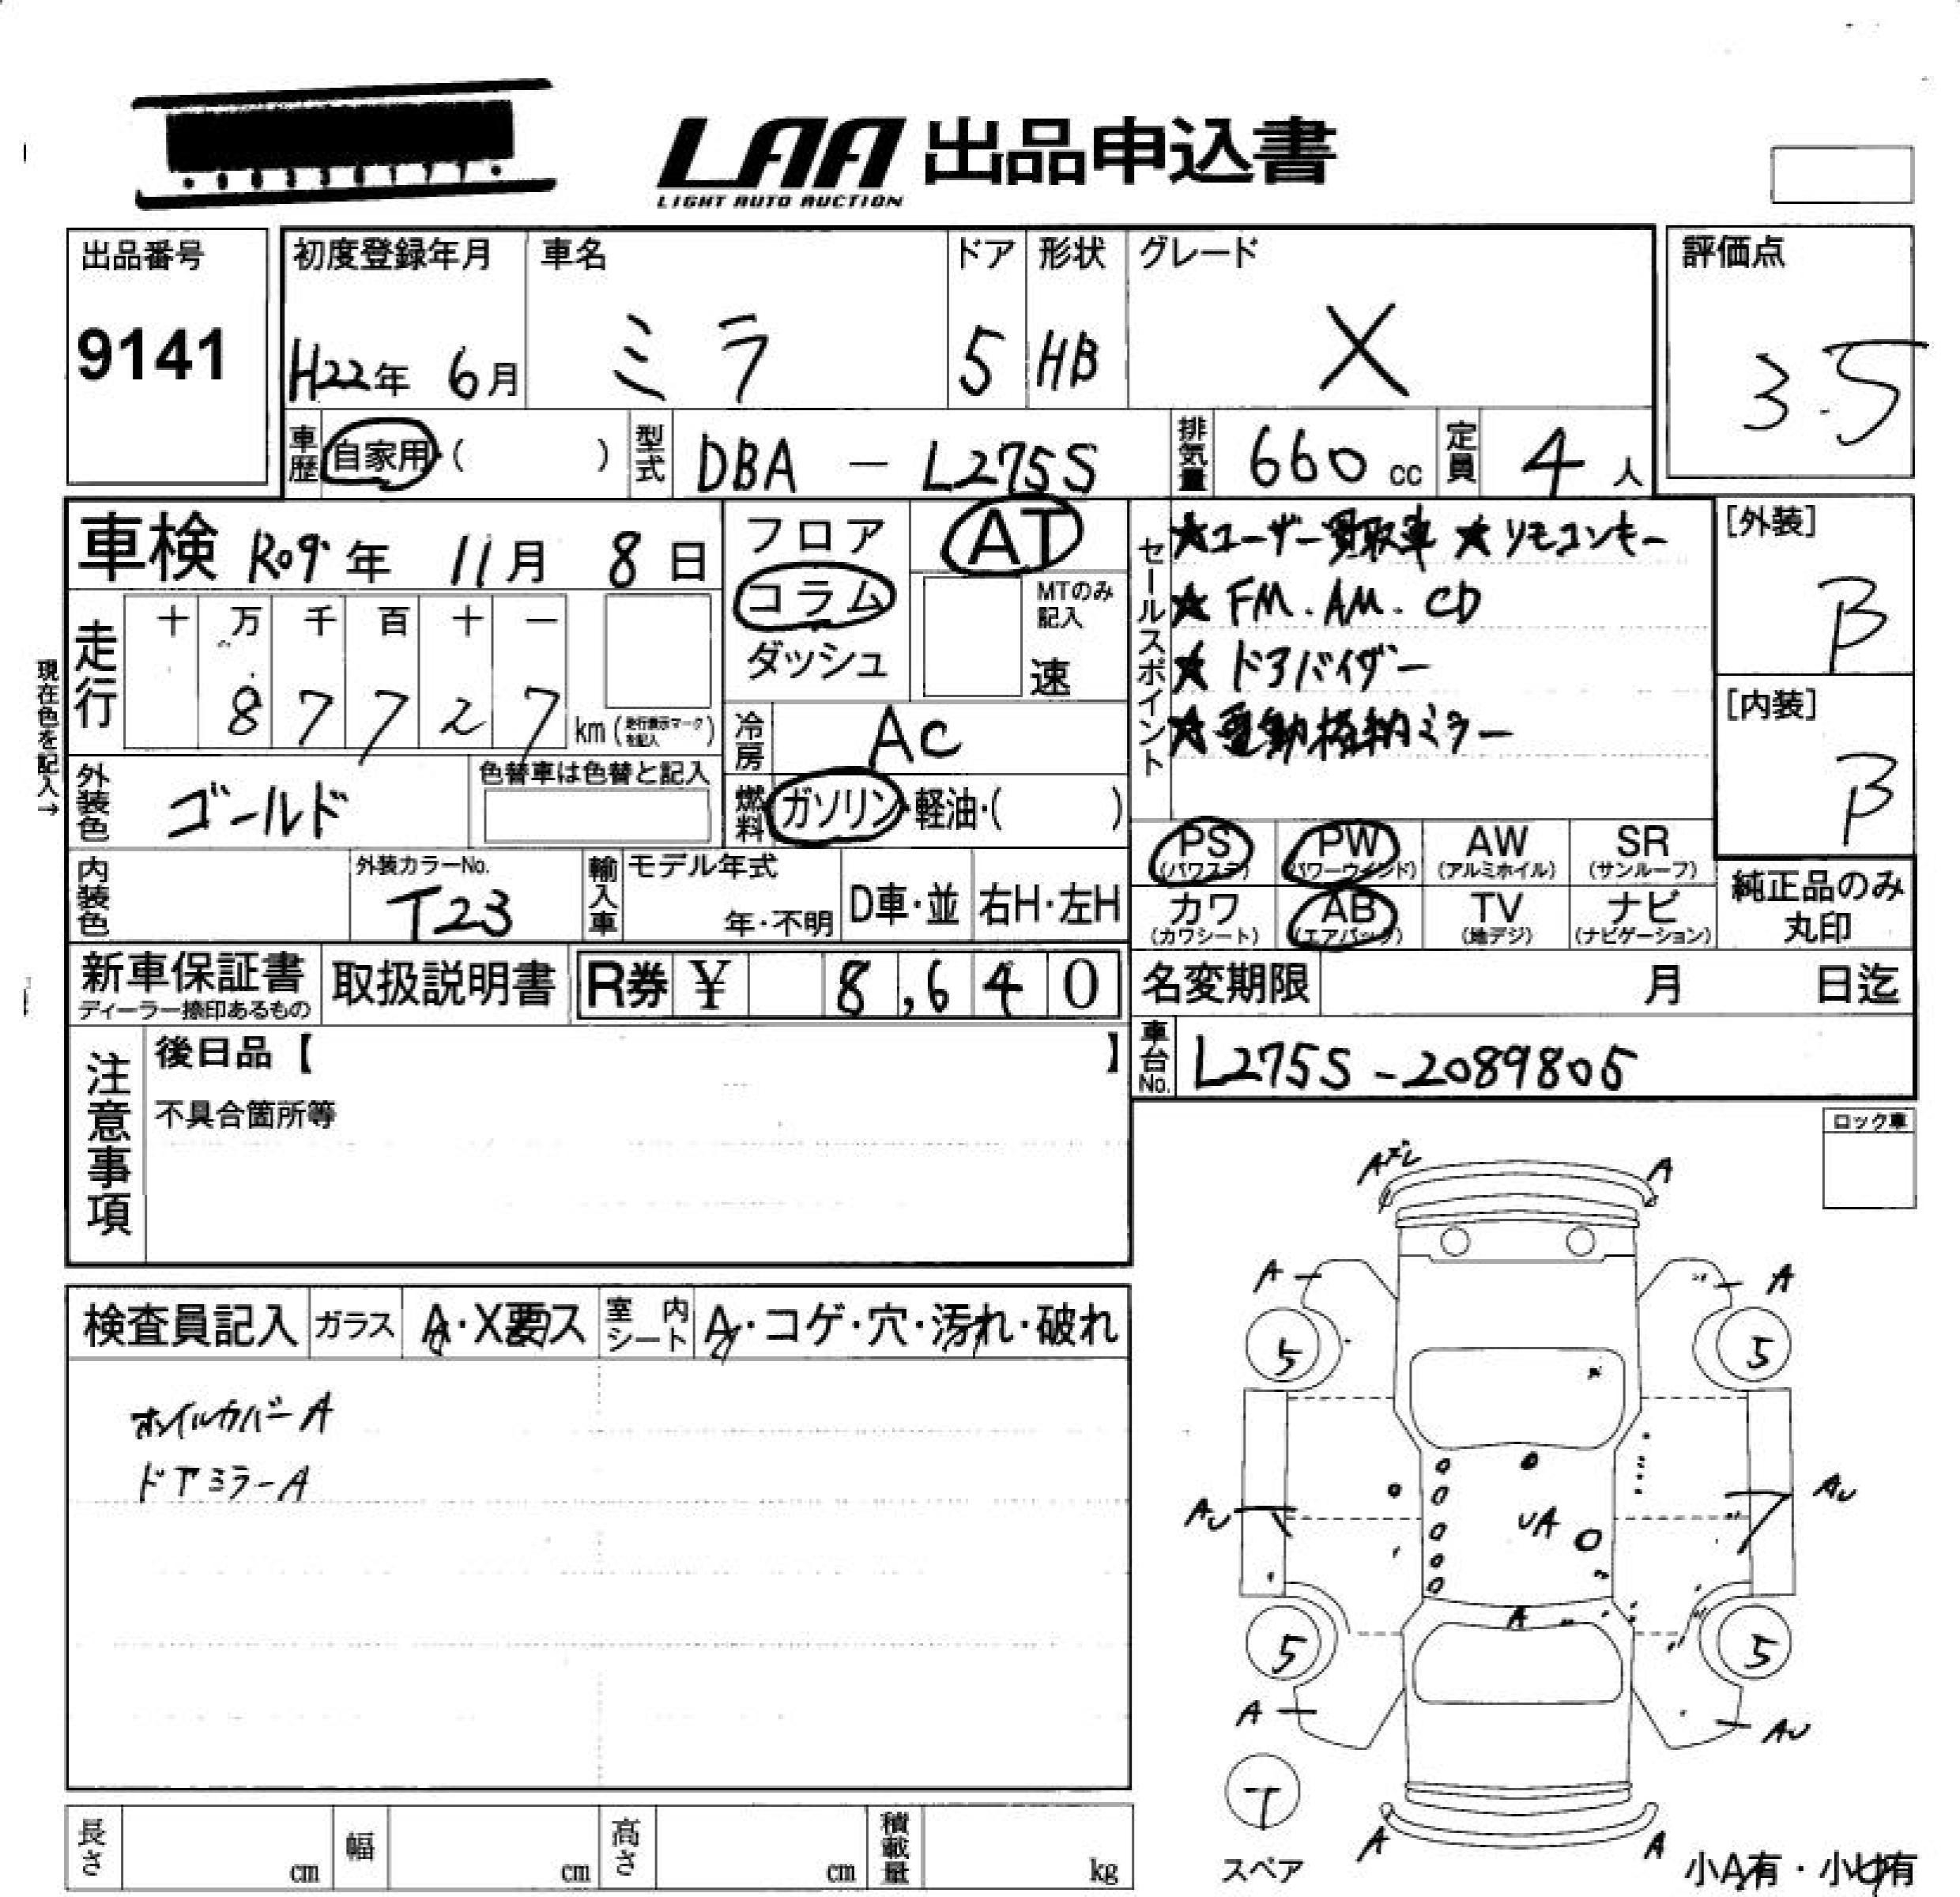 LAA 出品申込書
LIGHT AUTO AUCTION
出品番号
9141
初度登録年月
H22年 6月
車名
ミラ
ドア
5
形状
HB
グレード
X
評価点
3.5
車歴 自家用・( )
型式 DBA - L275S
排気量 660 cc
定員 4 人
車検 R09年 11月 8日
フロア
コラム
ダッシュ
AT
MTのみ記入
速
走行
十 万 千 百 十 一
8 7 7 2 7 km (走行表示マークを記入)
現在色を記入→
冷房 AC
外装色 ゴールド
色替車は色替と記入
燃料 ガソリン・軽油・( )
内装色
外装カラーNo.
T23
輸入車
モデル年式
年・不明
D車・並
右H・左H
セールスポイント
★ユーザー買取車 ★リモコンキー
★ FM. AM. CD
★ ドアバイザー
★電動格納ミラー
[外装]
B
[内装]
B
PS (パワステ)
PW (パワーウインド)
AW (アルミホイル)
SR (サンルーフ)
カワ (カワシート)
AB (エアバック)
TV (地デジ)
ナビ (ナビゲーション)
純正品のみ丸印
新車保証書
ディーラー捺印あるもの
取扱説明書
R券 ¥ 8,640
名変期限 月 日迄
車台No. L275S-2089805
注意事項
後日品【 】
不具合箇所等
ロック車
検査員記入
ガラス A・X要ス
室内シート A・コゲ・穴・汚れ・破れ
ホイルカバーA
ドアミラーA
A
A A
5 5
AU AU
UA
A
5 5
A AU
T
スペア
A A
小A有・小U有
長さ cm
幅 cm
高さ cm
積載量 kg